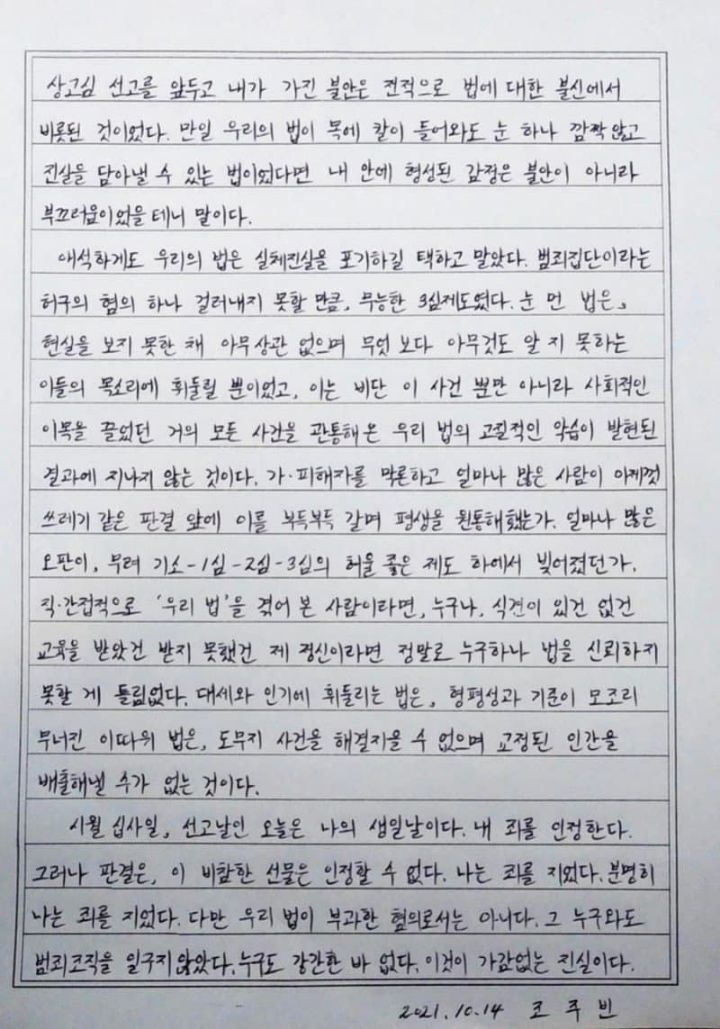 상고심 선고를 앞두고 내가 가진 불안은 전적으로 법에 대한 불신에서
비롯된 것이었다. 만일 우리의 법이 목에 칼이 들어와도 눈 하나 깜짝 않고
진실을 담아낼 수 있는 법이었다면 내 안에 형성된 감정은 불안이 아니라
부끄러움이었을 테니 말이다.
애석하게도 우리의 법은 실체진실을 포기하길 택하고 말았다. 범죄집단이라는
허구의 혐의 하나 걸러내지 못할 만큼, 무능한 3심제도였다. 눈 먼 법은,
현실을 보지 못한 채 아무 상관 없으며 무엇 보다 아무것도 알 지 못하는
이들의 목소리에 휘둘릴 뿐이었고, 이는 비단 이 사건 뿐만 아니라 사회적인
이목을 끌었던 거의 모든 사건을 관통해온 우리 법의 고질적인 악습이 발현된
결과에 지나지 않는 것이다. 가·피해자를 막론하고 얼마나 많은 사람이 여제껏
쓰레기 같은 판결 앞에 이를 부득부득 갈며 평생을 원통해했는가. 얼마나 많은
오판이, 무려 기소-1심-2심-3심의 허울 좋은 제도 하에서 빚어졌던가.
직·간접적으로 '우리 법'을 겪어 본 사람이라면, 누구나, 식견이 있건 없건
교육을 받았건 받지 못했건 제 정신이라면 정말로 누구하나 법을 신뢰하지
못할 게 틀림없다. 대세와 인기에 휘둘리는 법은, 형평성과 기준이 모조리
무너진 이따위 법은, 도무지 사건을 해결지을 수 없으며 교정된 인간을
배출해낼 수가 없는 것이다.
시월 십사일, 선고날인 오늘은 나의 생일날이다. 내 죄를 인정한다.
그러나 판결은, 이 비참한 선물은 인정할 수 없다. 나는 죄를 지었다. 분명히
나는 죄를 지었다. 다만 우리 법이 부과한 혐의로서는 아니다. 그 누구와도
범죄조직을 일구지 않았다. 누구도 강간한 바 없다. 이것이 가감없는 진실이다.
2021.10.14 조주빈